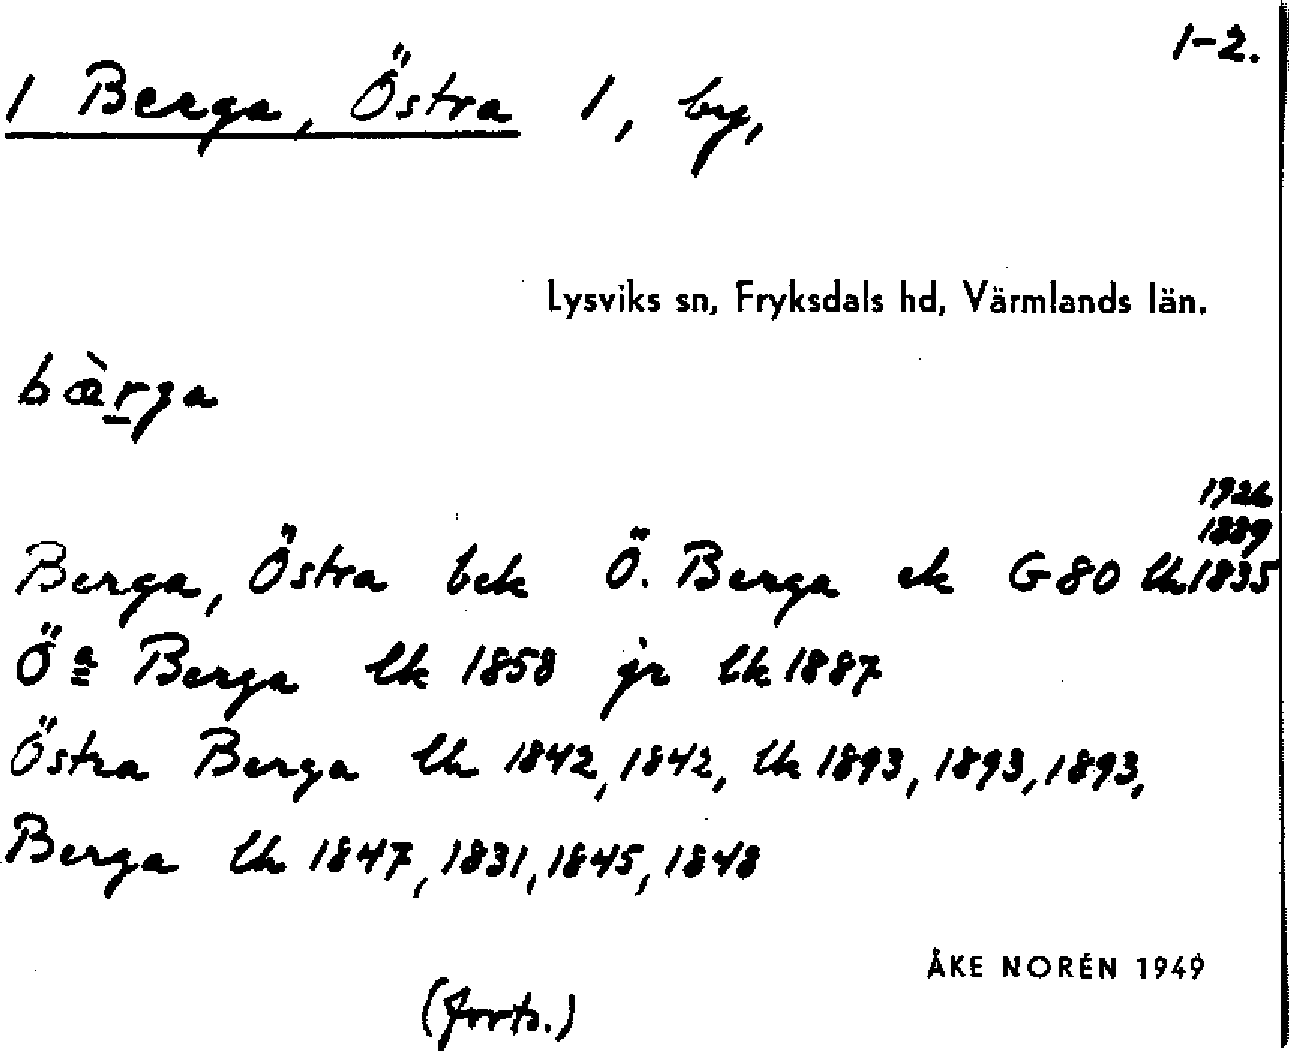 1-2.
1 Berga, Östra 1, by,
Lysviks sn, Fryksdals hd, Värmlands län.
bæ̀rga
1926
1889
Berga, Östra bek Ö. Berga ek G80 lk 1835
Öª Berga lk 1858 jr lk 1887
Östra Berga lk 1842, 1842, lk 1893, 1893, 1893,
Berga lk 1847, 1831, 1845, 1848
ÅKE NORÉN 1949
(forts.)